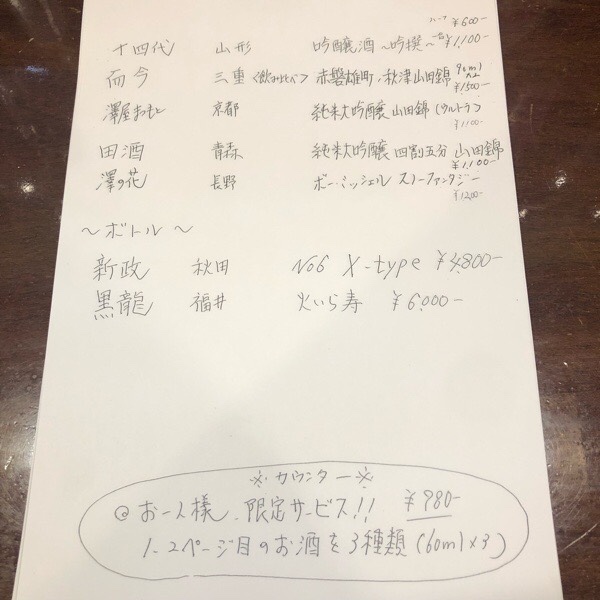 ハーフ ¥600-
十四代 山形 吟醸酒 ～吟撰～ 一合 ¥1,100-
而今 三重 <飲み比べ> 赤磐雄町,秋津山田錦 90ml
¥1500-
澤屋まつもと 京都 純米大吟醸 山田錦 (ウルトラ)
¥1100-
田酒 青森 純米大吟醸 四割五分 山田錦
¥1,100-
澤の花 長野 ボー・ミッシェル スノーファンタジー
¥1200-
～ボトル～
新政 秋田 No6 X-type ¥4,800-
黒龍 福井 火いら寿 ¥6,000-
※カウンター※
◎お一人様、限定サービス!! ¥980-
1、2ページ目のお酒を3種類(60ml×3)